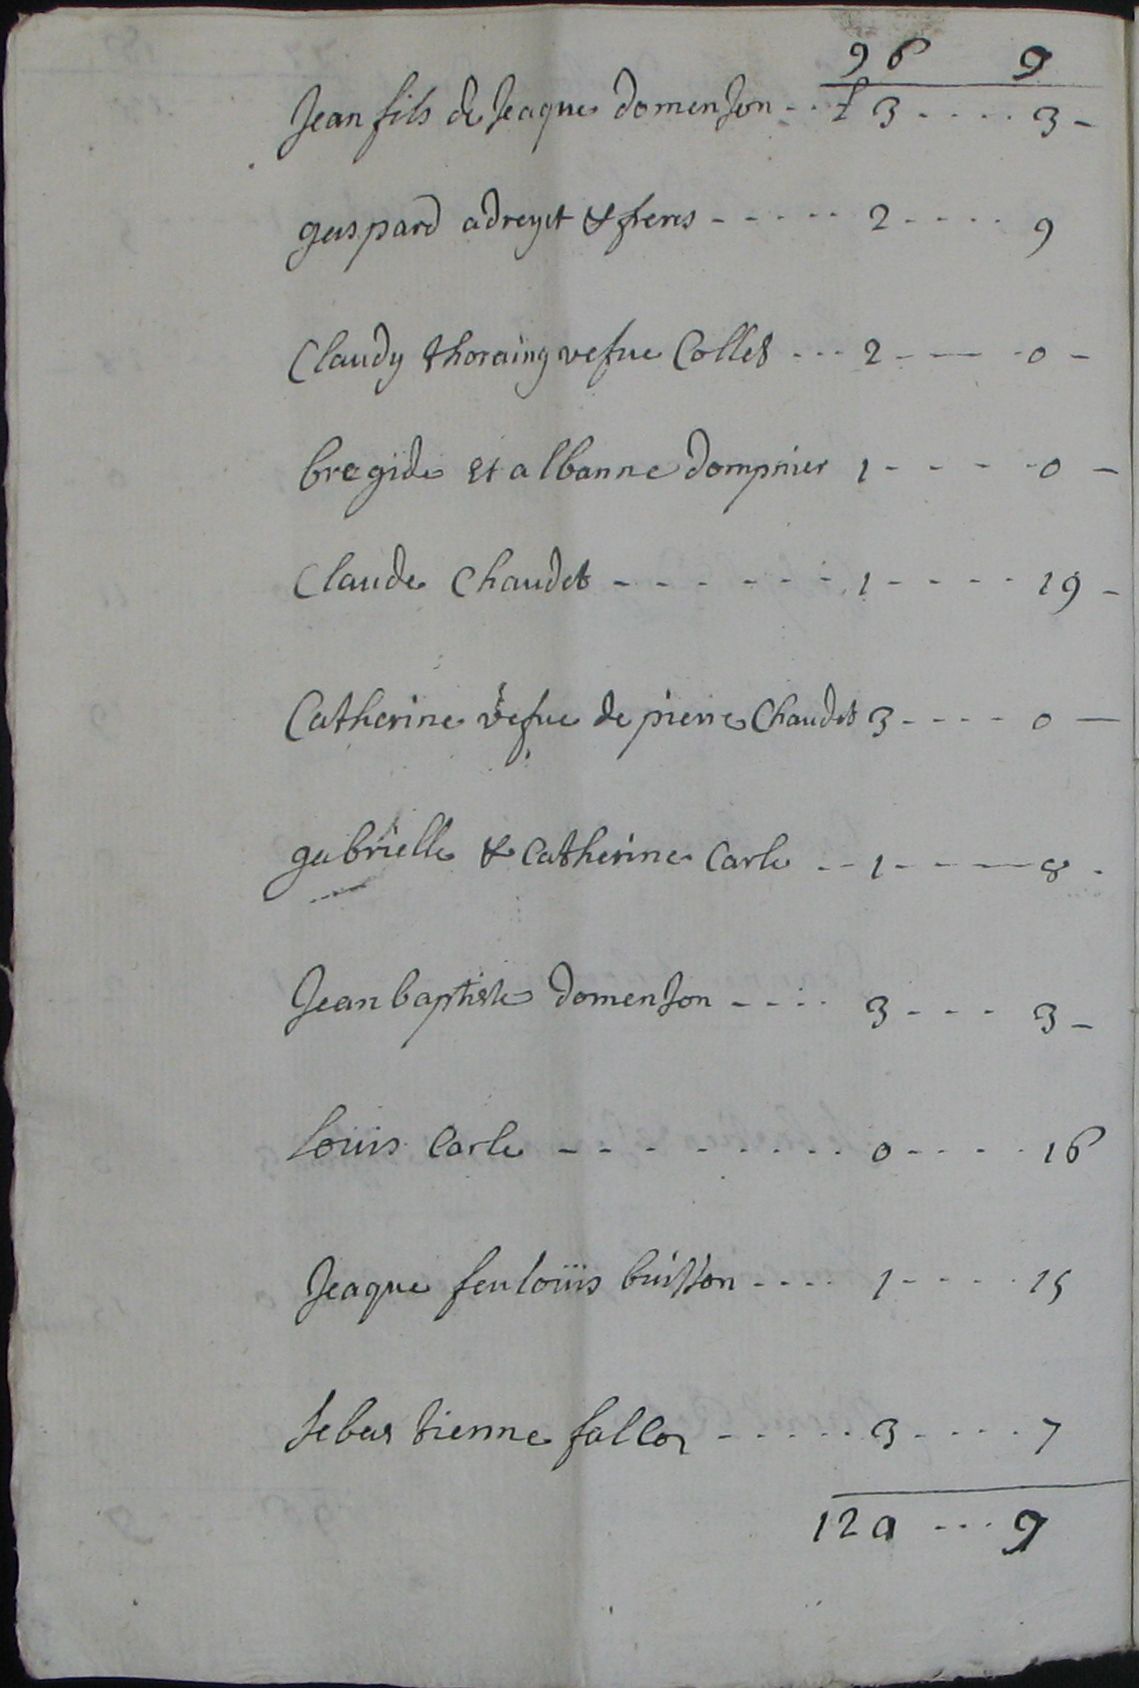 96 9
Jean fils de Jeaque domenJon - - ₶ 3 - - - - 3 -
gaspard adreyet & freres - - - - - 2 - - - - 9
Claudy thoraing vefue Collet - - - 2 - - - 0 -
bregide et albanne dompnier 1 - - - - 0 -
Claude Chaudet - - - - - - - 1 - - - - 19 -
Catherine vefue de pierre Chaudet 3 - - - - 0 -
gabrielle & Catherine Carle - - 1 - - - - 8 -
Jean baptiste domenJon - - - - 3 - - - - 3 -
louis Carle - - - - - - - - - 0 - - - - 16
Jeaque feu louïis buisson - - - - 1 - - - - - 15
sebastienne falcoz - - - - - 3 - - - - 7
120 - - - 9